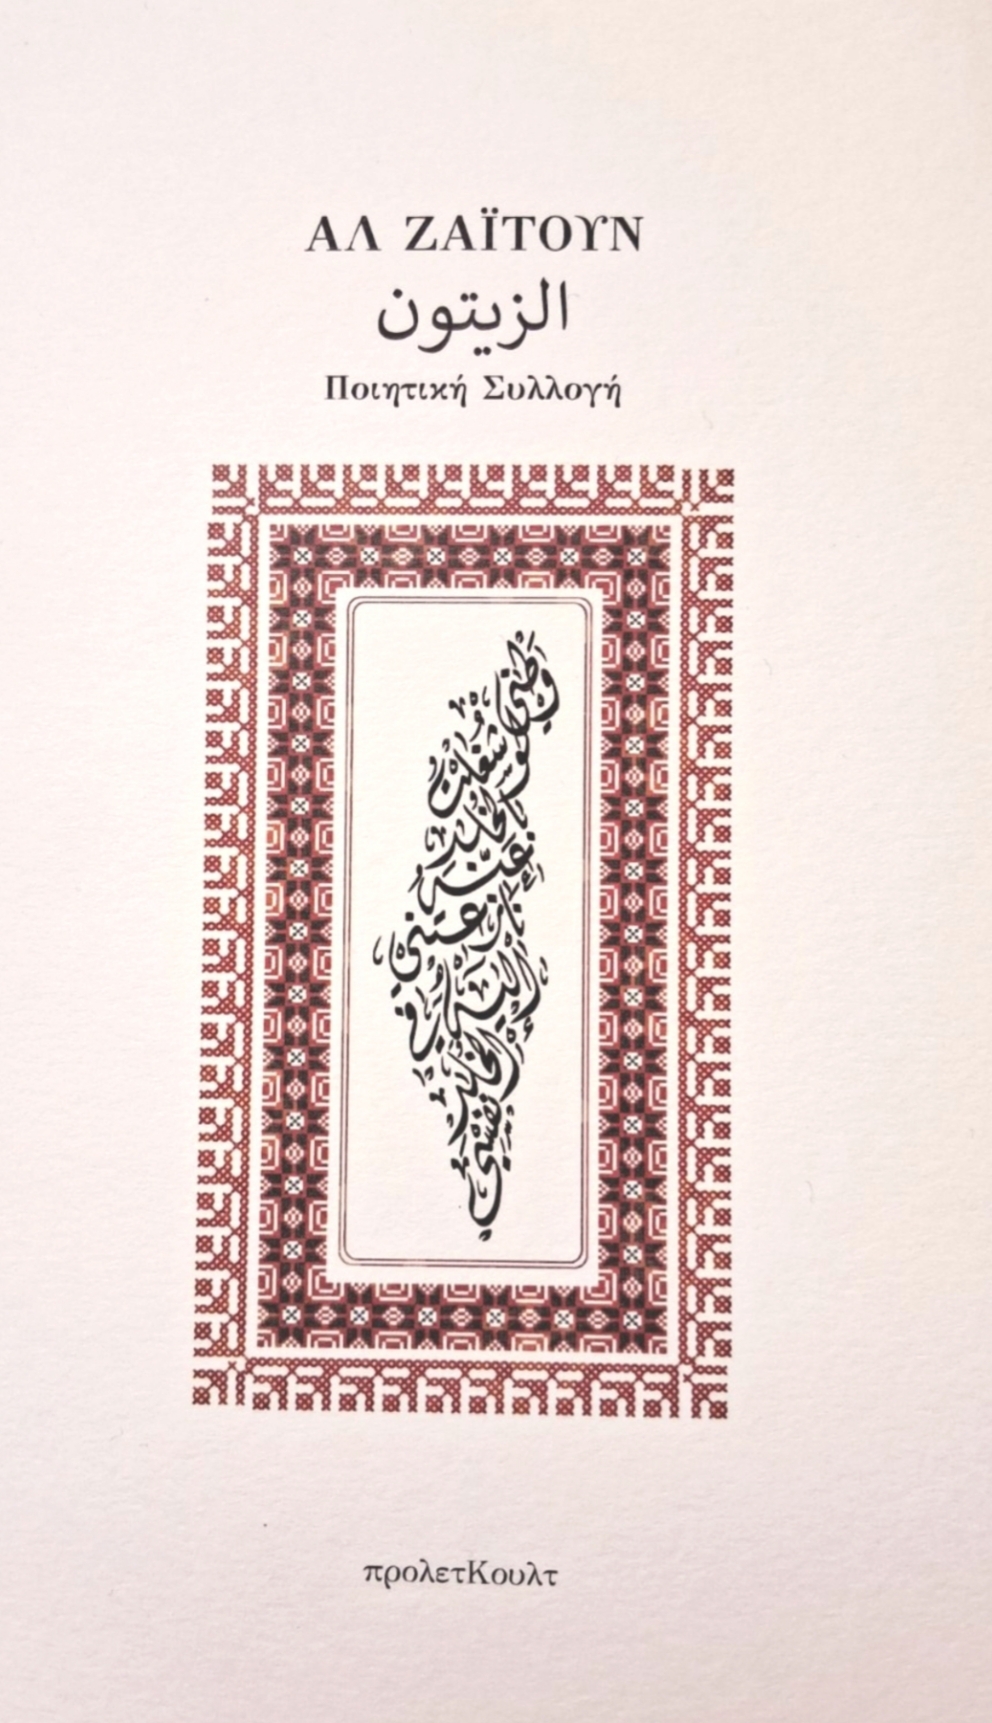 ΑΛ ΖΑΪΤΟΥΝ
الزيتون
Ποιητική Συλλογή
وطني لو
شغلت
بالخلد
عنه
نازعتني
إليه في
الخلد
نفسي
προλετΚουλτ